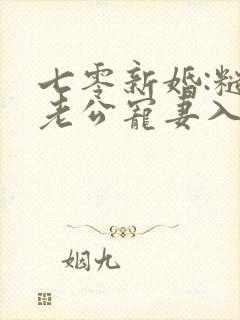 七零新婚:糙
老公宠妻入
姻九